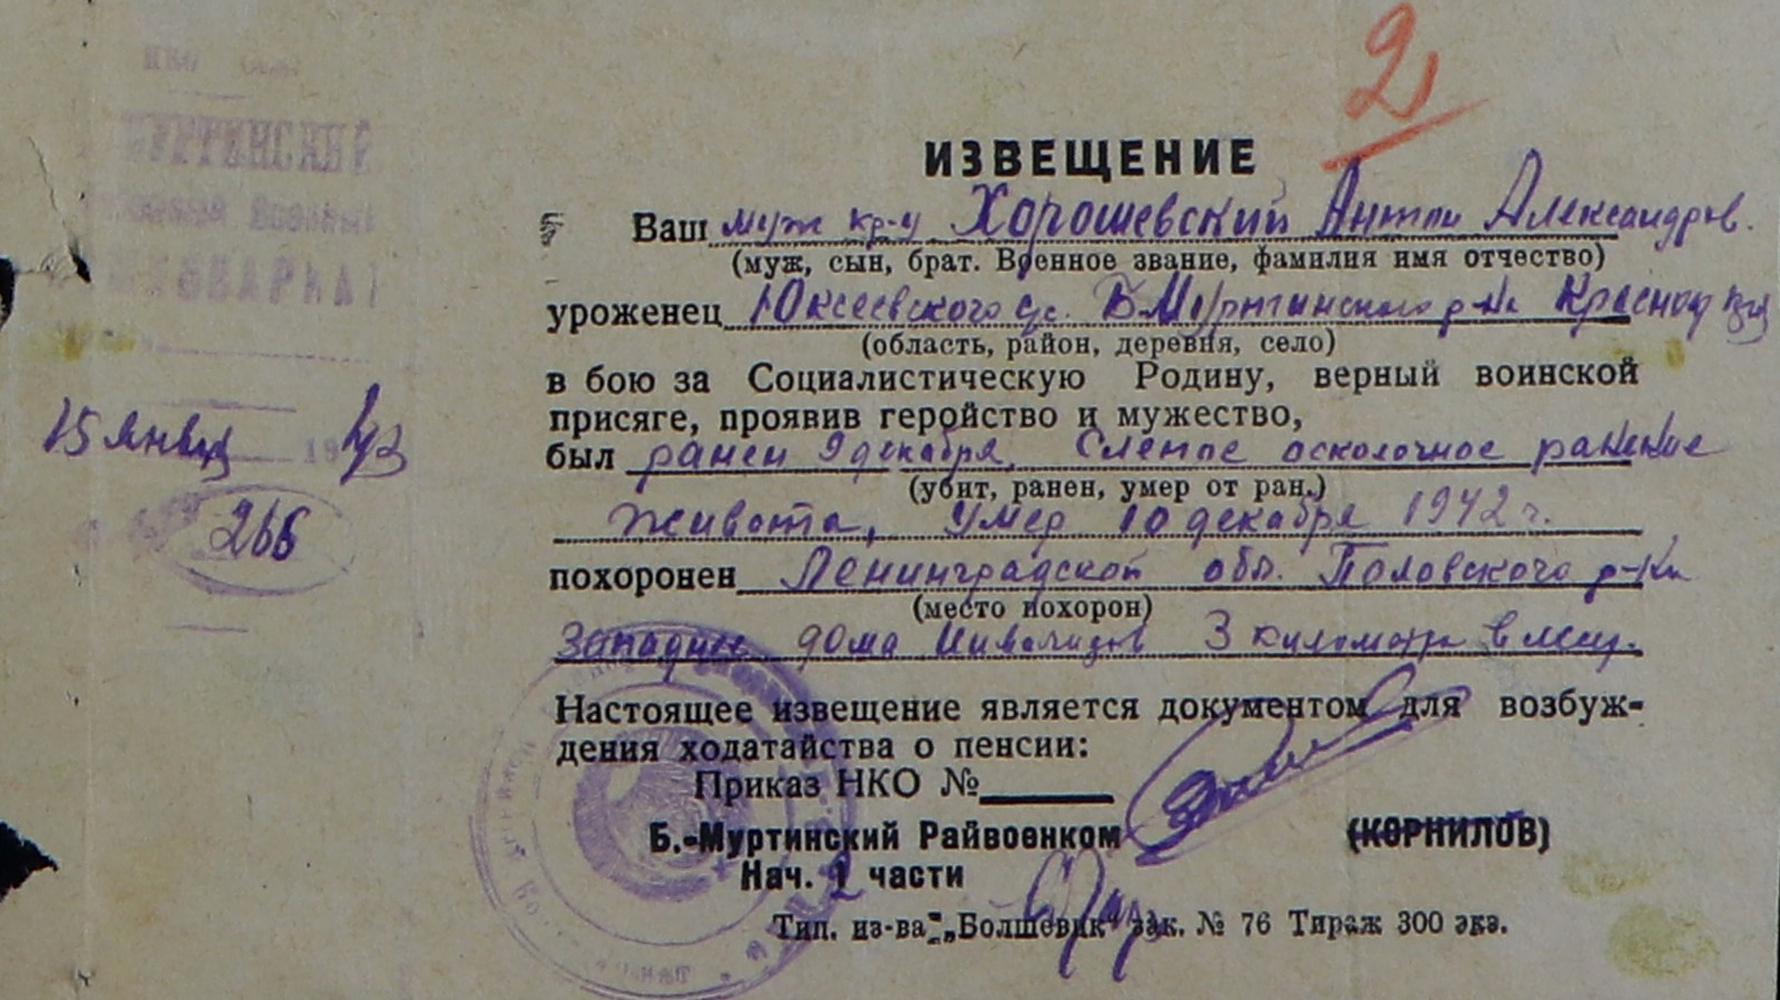 2
НКО
МУРТИНСКИЙ
Военный
КОМИССАРИАТ
15 январ 1943
266
ИЗВЕЩЕНИЕ
Ваш муж кр-ц Хорошевский Антон Александров.
(муж, сын, брат. Военное звание, фамилия имя отчество)
уроженец Юксеевского с/с. Б.Муртинского р-на Красноя
(область, район, деревня, село)
в бою за Социалистическую Родину, верный воинской
присяге, проявив геройство и мужество,
был ранен 9 декабря, Слепое осколочное ранение
(убит, ранен, умер от ран.)
живота, Умер 10 декабря 1942 г.
похоронен Ленинградской обл. Половского р-на
(место похорон)
Западнее дома Инвалидов 3 километра в лесу.
Настоящее извещение является документом для возбуж-
дения ходатайства о пенсии:
Приказ НКО №
Б.-Муртинский Райвоенком (КОРНИЛОВ)
Нач. 2 части
Тип. из-ва „Болшевик“ зак. № 76 Тираж 300 экз.